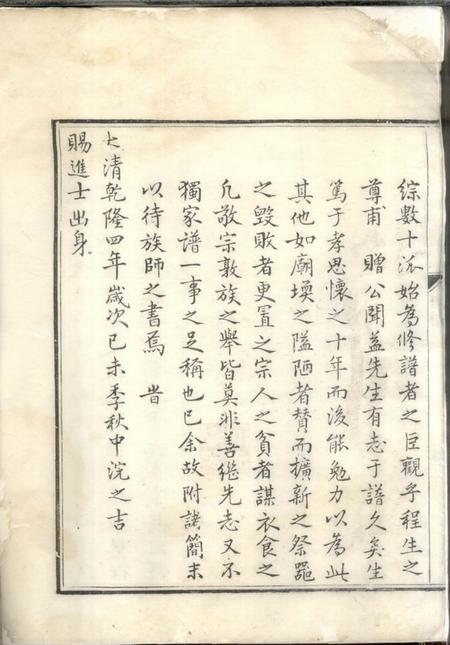 综数十派始為修譜者之臣觀乎程生之
尊甫 贈公聞益先生有志于譜久矣生
篤于孝思懷之十年而後能勉力以為此
其他如廟堧之隘陋者賛而擴新之祭器
之毀敗者更置之宗人之貧者謀衣食之
凡敬宗敦族之舉皆莫非善継先志又不
獨家譜一事之足稱也已余故附諸簡末
以待族師之書焉 旹
大清乾隆四年歲次己未季秋中浣之吉
賜進士出身